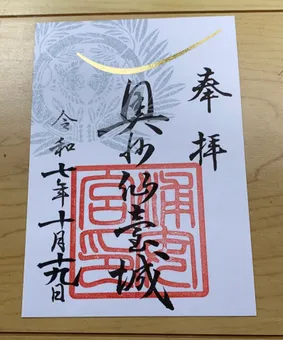 奉拝
奥州仙臺城
令和七年十月十九日